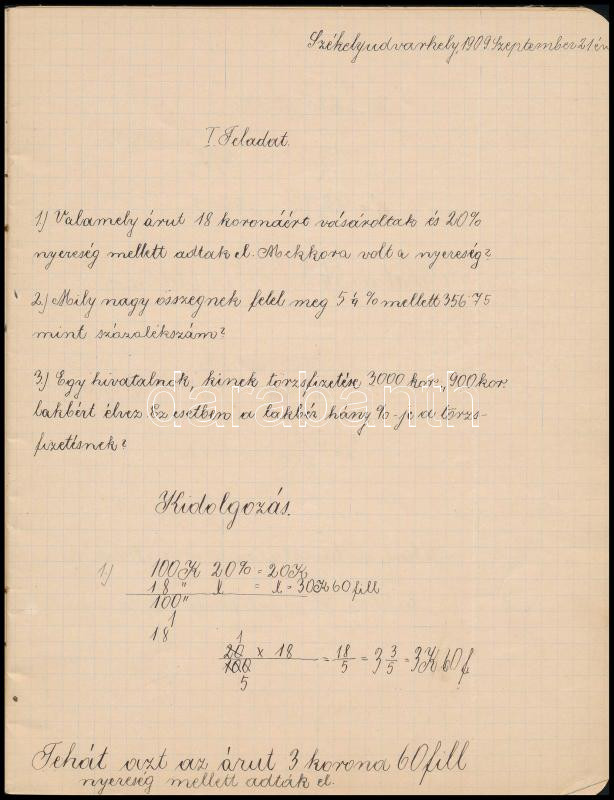 Székelyudvarhely, 1909. Szeptember 21 én
I. Feladat.
1.) Valamely árut 18 koronáért vásároltak és 20%
nyereség mellett adtak el. Mekkora volt a nyereség?
2.) Mily nagy összegnek felel meg 5 ¼ % mellett 356.75
mint százalékszám?
3.) Egy hivatalnok, kinek törzsfizetése 3000 kor., 900 kor
lakbért élvez Ez esetben a lakbér hány %-je a törzs-
fizetésnek?
darabanth
Kidolgozás.
1.) 100 K 20% = 20 K
18 " = 3 K 60 fill
100 "
1
18
1
20 x 18 / 100 = 18/5 = 3 3/5 = 3 K 60 f
5
Tehát azt az árut 3 korona 60 fill
nyereség mellett adták el.